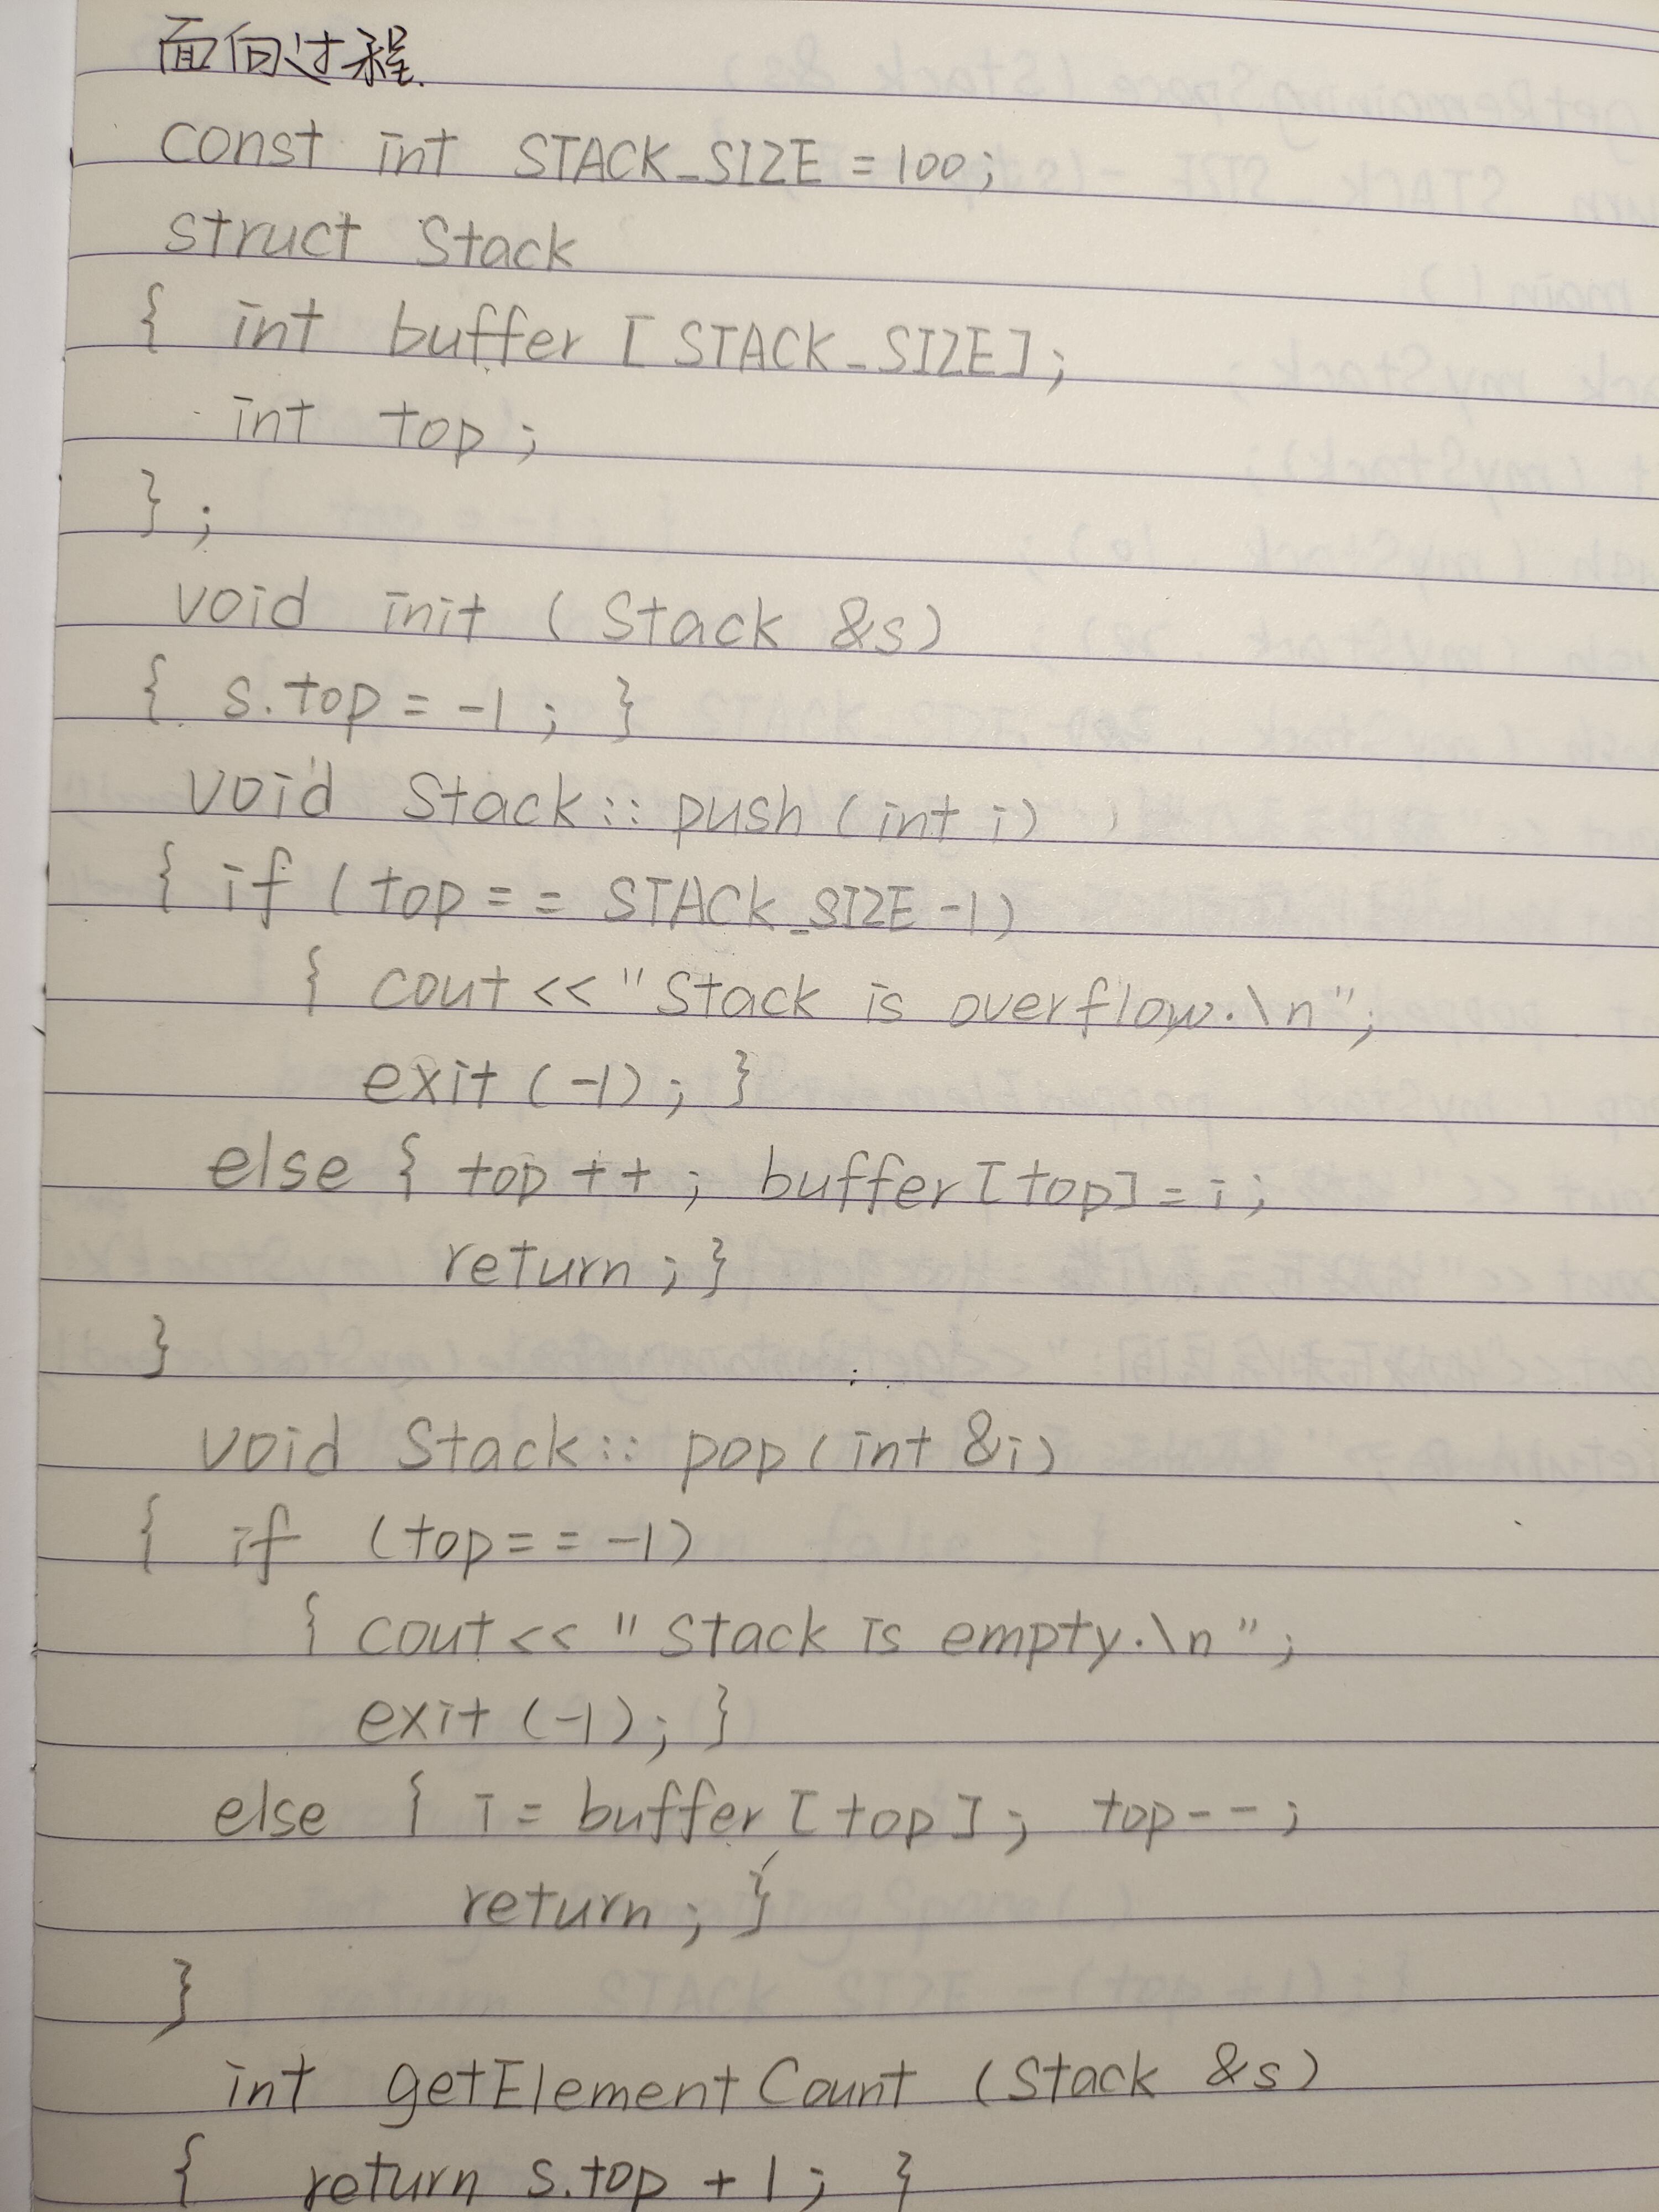 面向过程.
const int STACK_SIZE = 100;
struct Stack
{ int buffer [STACK_SIZE];
int top;
};
void init (Stack &s)
{ s.top = -1; }
void Stack::push (int i)
{ if (top == STACK_SIZE -1)
{ cout << "Stack is overflow.\n";
exit (-1); }
else { top ++; buffer [top] = i;
return; }
}
void Stack::pop (int &i)
{ if (top == -1)
{ cout << "Stack is empty.\n";
exit (-1); }
else { i = buffer [top]; top--;
return; }
}
int getElementCount (Stack &s)
{ return s.top + 1; }